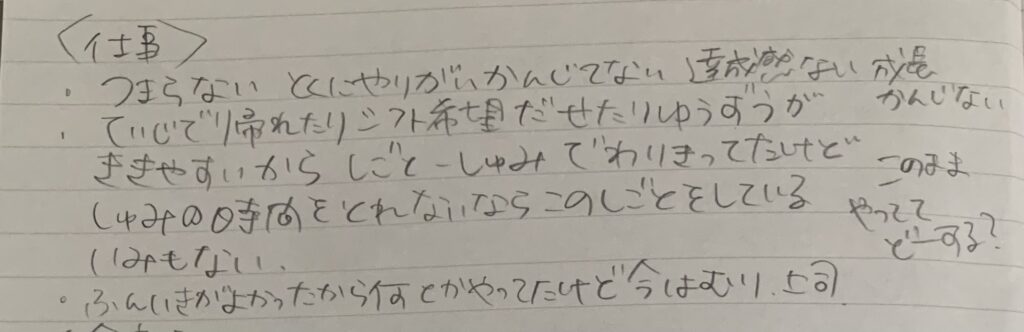 〈仕事〉
・つまらない とくにやりがいかんじてない 達成感ない 成長
かんじない
・ていじで帰れたりシフト希望だせたりゆうずうが
ききやすいから しごとーしゅみ でわりきってたけど
このまま
しゅみの時間をとれないならこのしごとをしている
やってて
どーする?
いみもない、
・ふんいきがよかったから何とかやってたけど今はむり、上司